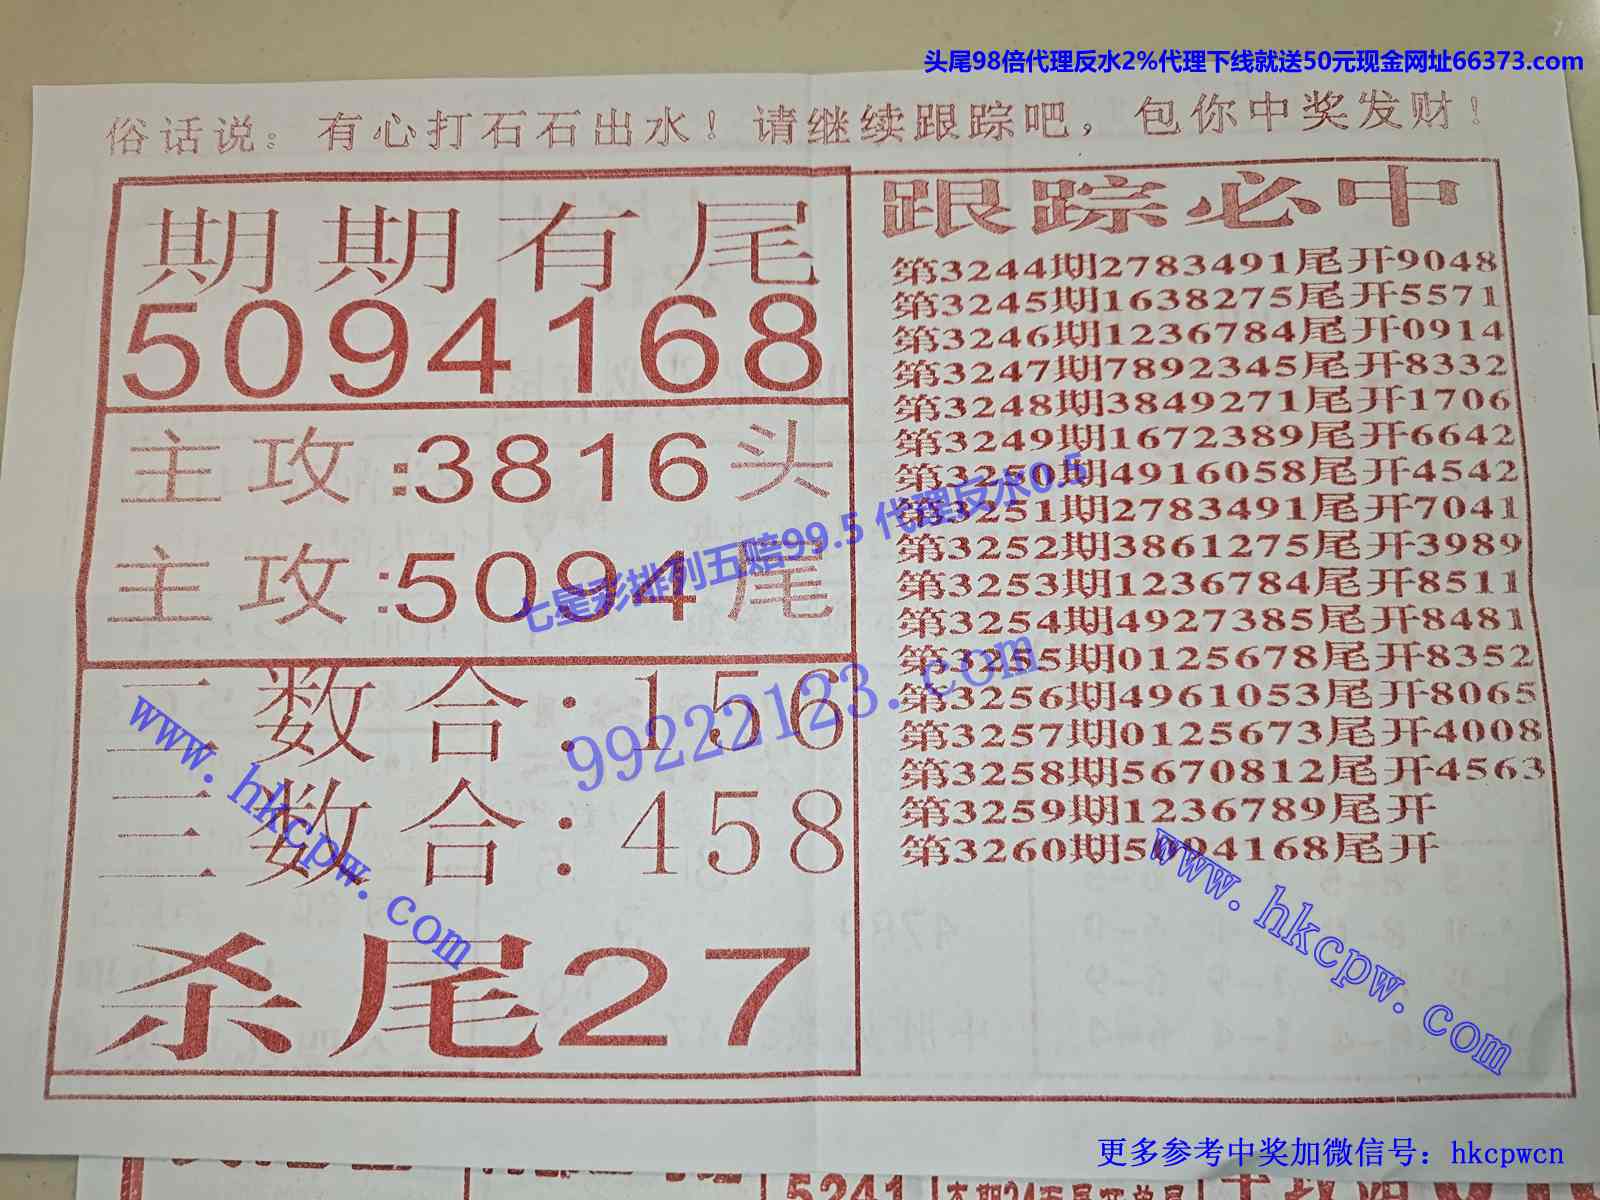 头尾98倍代理反水2%代理下线就送50元现金网址66373.com
俗话说：有心打石石出水！请继续跟踪吧，包你中奖发财！
期期有尾
5094168
主攻:3816头
主攻:5094尾
二数合:156
三数合:458
杀尾27
跟踪必中
第3244期2783491尾开9048
第3245期1638275尾开5571
第3246期1236784尾开0914
第3247期7892345尾开8332
第3248期3849271尾开1706
第3249期1672389尾开6642
第3250期4916058尾开4542
第3251期2783491尾开7041
第3252期3861275尾开3989
第3253期1236784尾开8511
第3254期4927385尾开8481
第3255期0125678尾开8352
第3256期4961053尾开8065
第3257期0125673尾开4008
第3258期5670812尾开4563
第3259期1236789尾开
第3260期5094168尾开
七星彩排列五赔99.5 代理反水0.5
99222123.com
www.hkcpw.com
www.hkcpw.com
更多参考中奖加微信号：hkcpwcn
5241